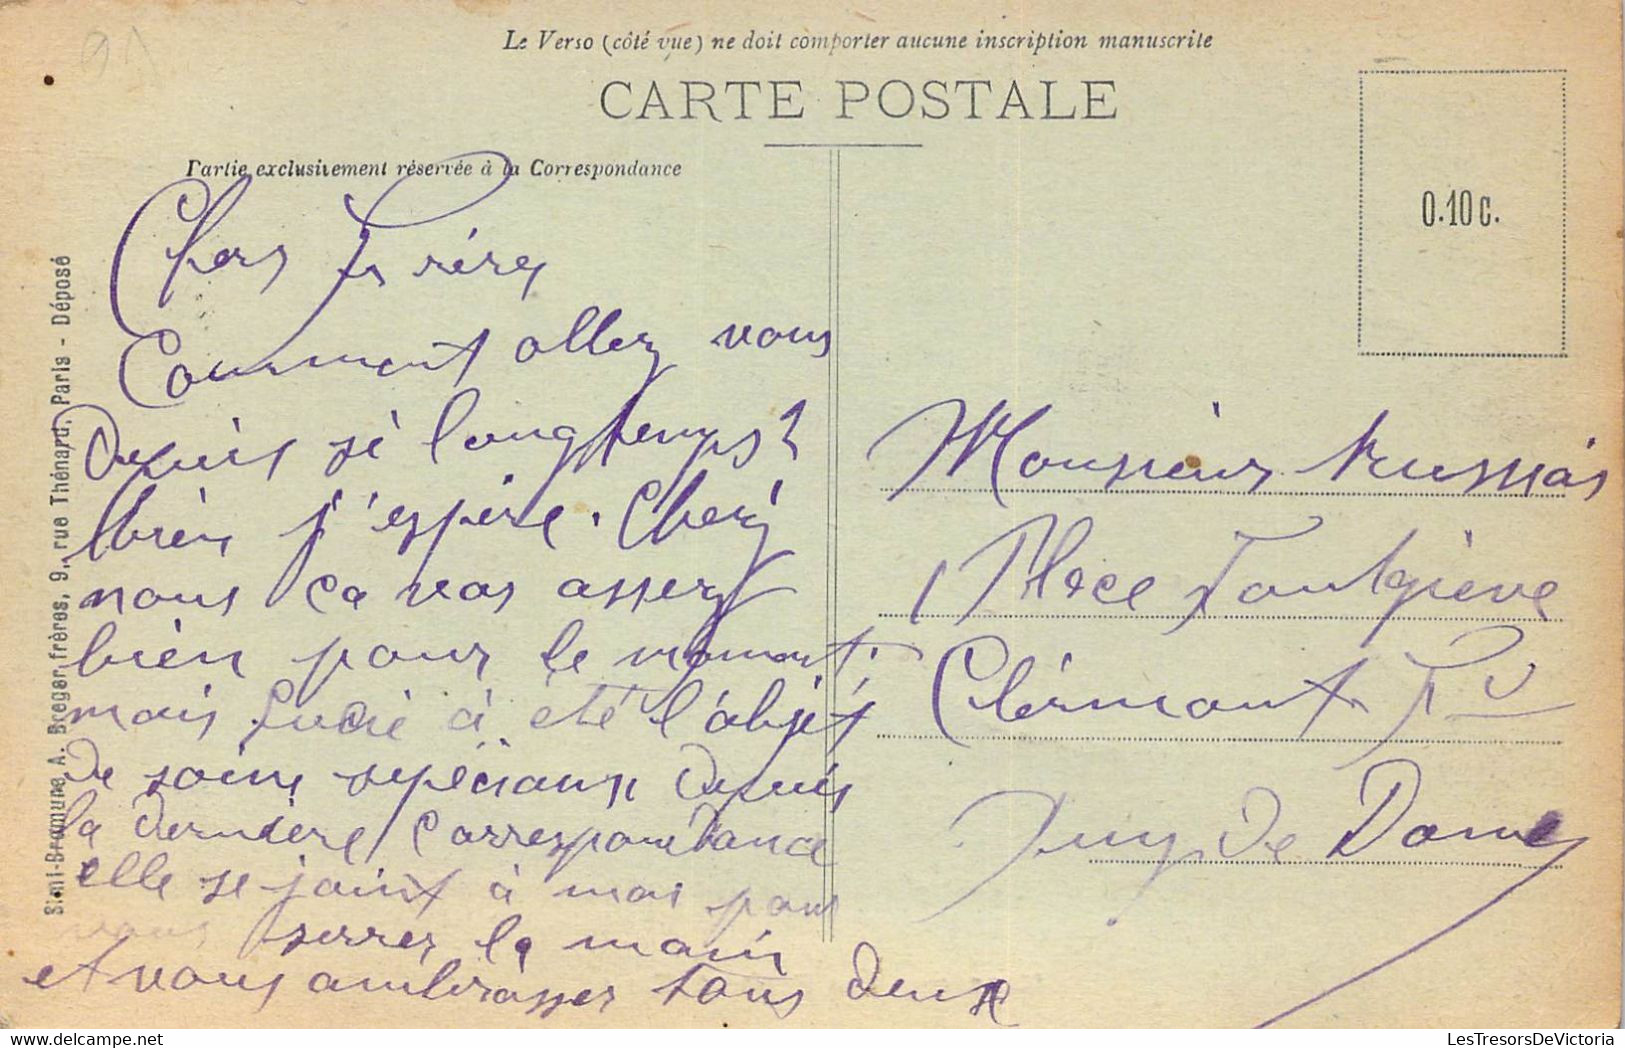 Le Verso (côté vue) ne doit comporter aucune inscription manuscrite
CARTE POSTALE
Partie exclusivement réservée à la Correspondance
0.10 c.
Simi-Bromure A. Breger frères, 9, rue Thénard, Paris - Déposé
91
Chers Frères
Comment allez vous
depuis si longtemps ?
bien j'espère. Chez
nous ca vas assez
bien pour le moment.
mais Lucie à été l'objet
de soins speciaux depuis
la derniere correspondance
elle se joint à moi pour
vous serrer la main
et vous ambrasser tous deux
Monsieur
Place Fontgieve
Clérmont Fd
Puy de Dome
LesTresorsDeVictoria